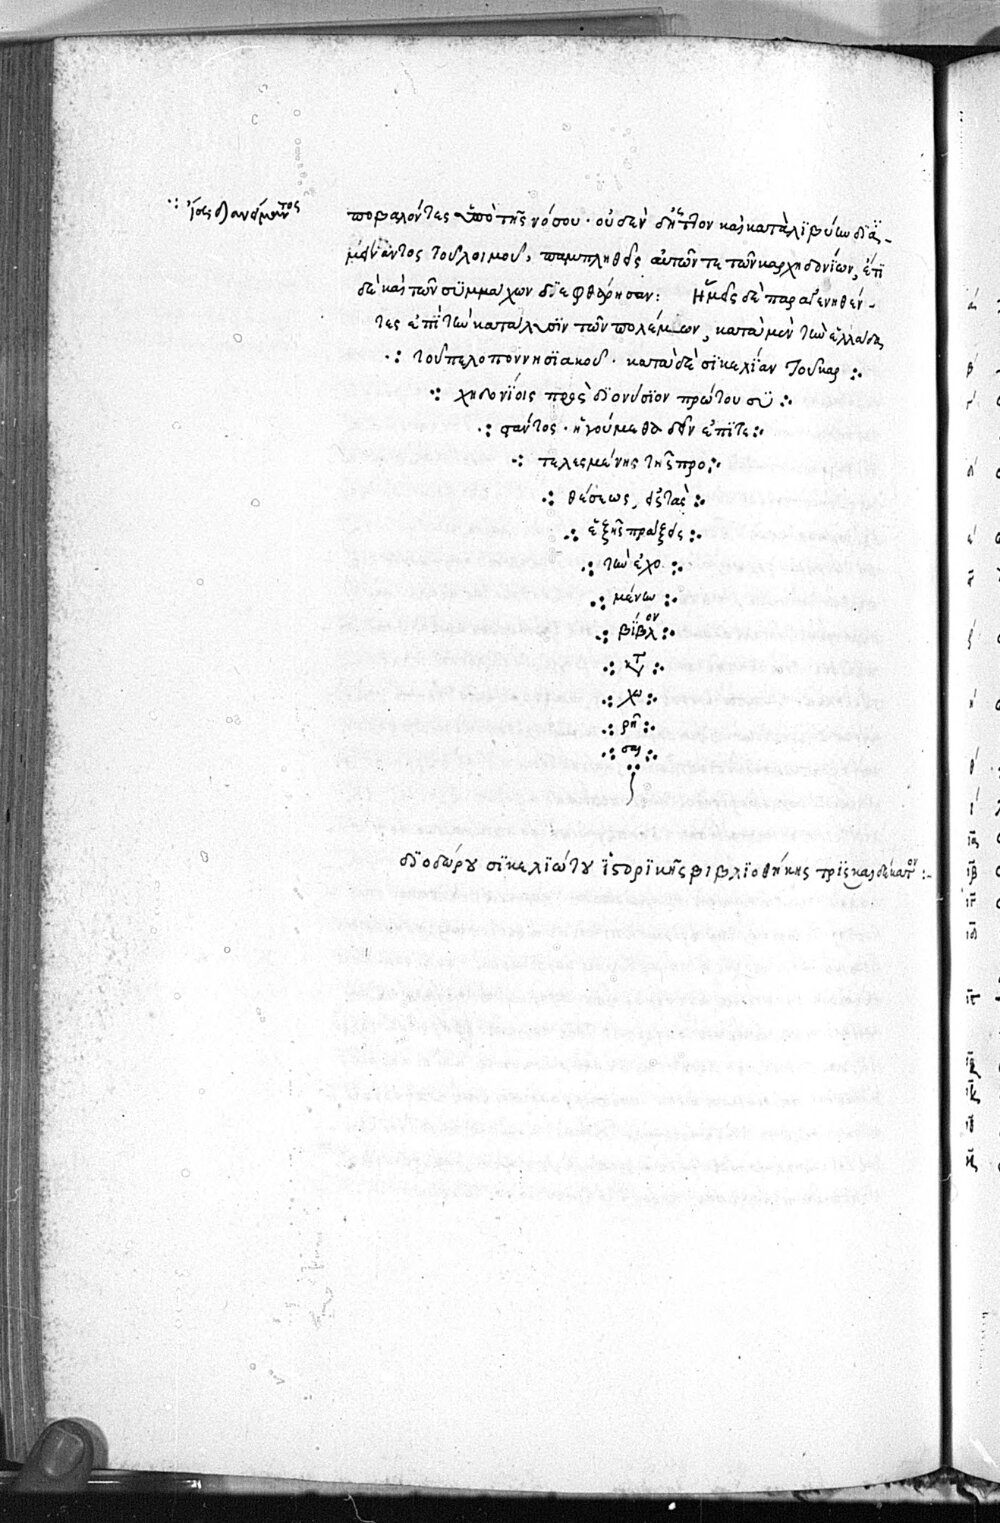 ποβαλόντες ὑπὸ τῆς νόσου· οὐδὲν δ' ἧττον καὶ κατὰ λιβύην δια-
μείναντος τοῦ λοιμοῦ, παμπληθεῖς αὐτῶν τε τῶν καρχηδονίων, ἔτι
δὲ καὶ τῶν συμμάχων διεφθάρησαν: Ἡμεῖς δὲ παραγενηθέν-
τες ἐπὶ τὴν κατάλυσιν τῶν πολέμων, κατὰ μὲν τὴν ἑλλάδα
τοῦ πελοποννησιακοῦ· κατὰ δὲ σικελίαν τοῦ καρ
χηδονίοις πρὸς διονύσιον πρώτου συ
φάντος· ἡγούμεθα δεῖν ἐπιτε
τελεσμένης τῆς προ
θέσεως, εἰς τὰς
ἑξῆς πράξεις
τὴν ἐχο
μένην
βίβλον
χω
ρῆ
σαι
διοδώρου σικελιώτου ἱστορικῆς βιβλιοθήκης τρισκαιδέκατον :-